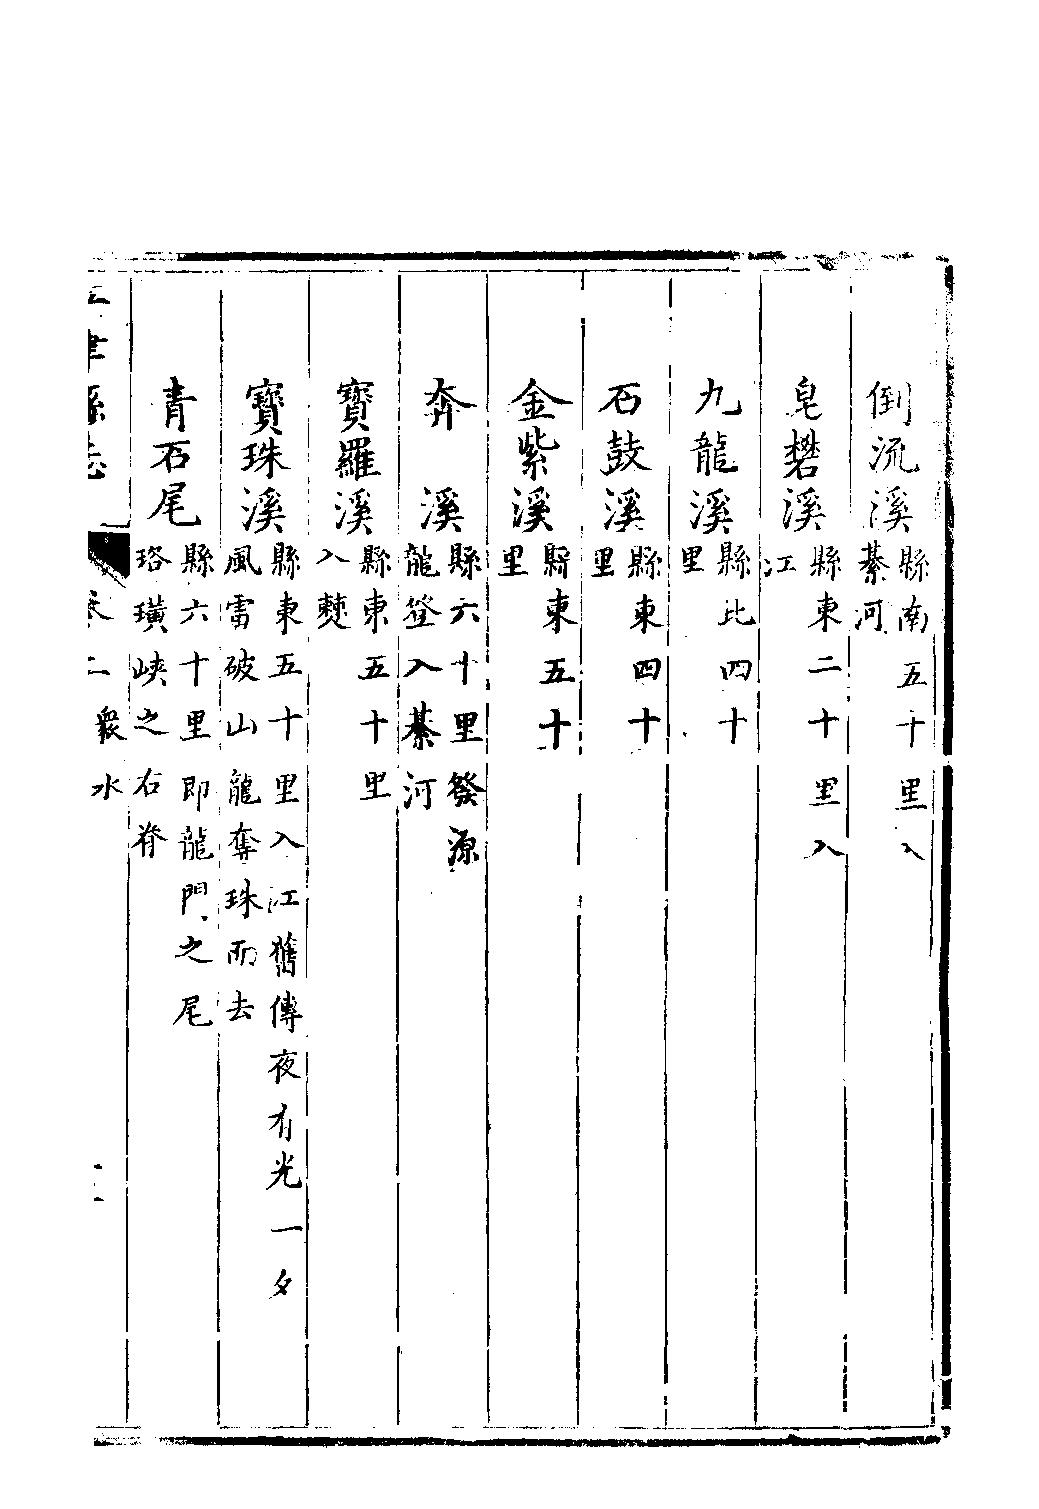 倒流溪 縣南五十里入
綦河
皂礬溪 縣東二十里入
江
九龍溪 縣北四十
里
石鼓溪 縣東四十
里
金紫溪 縣東五十
里
奔溪 縣六十里發源
龍登入綦河
寶羅溪 縣東五十里
入
寶珠溪 縣東五十里入江舊傳夜有光一夕
風雷破山龍奪珠而去
青石尾 縣六十里即龍門之尾
珞璜峽之右脊
津縣志 卷二 眾水